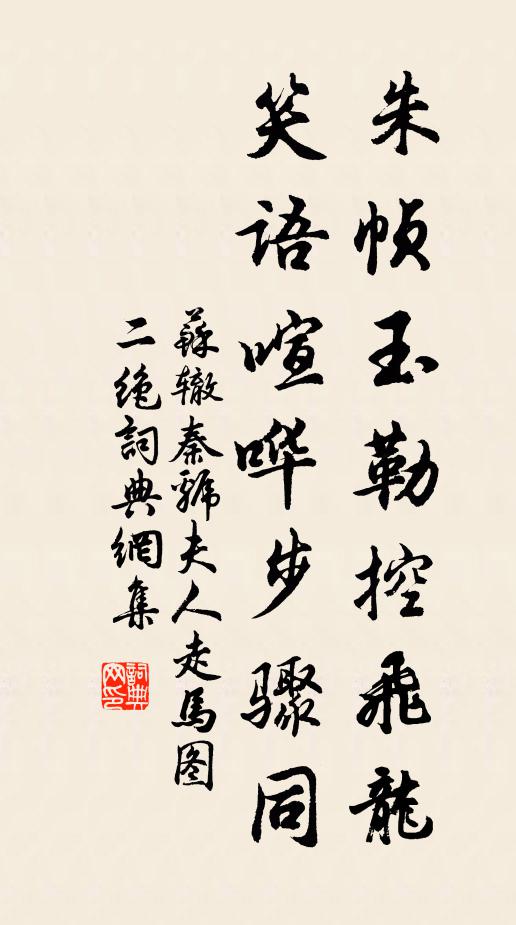 朱幩玉勒控飛龍
笑語喧哗步驟同
蘇辙秦虢夫人走馬图
二绝詞典網集
詞典网印